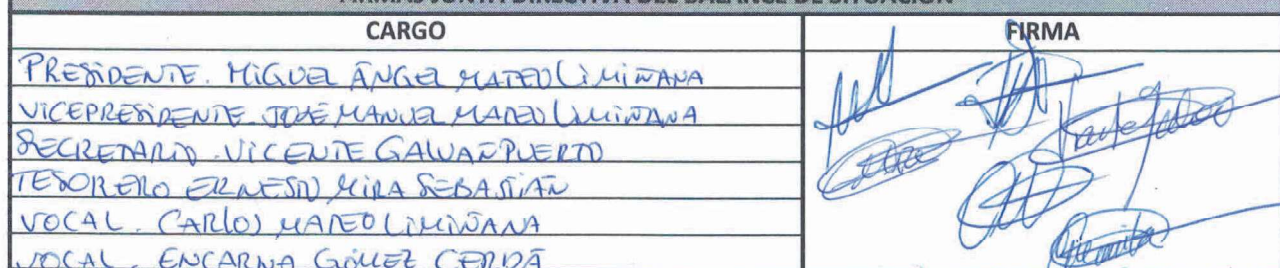 FIRMAS JUNTA DIRECTIVA DEL BALANCE DE SITUACIÓN
CARGO
FIRMA
PRESIDENTE. MIGUEL ÁNGEL MATEO LIMIÑANA
VICEPRESIDENTE. JOSÉ MANUEL MATEO LIMIÑANA
SECRETARIO. VICENTE GALVAÑ PUERTO
TESORERO ERNESTO MIRA SEBASTIÁN
VOCAL. CARLOS MATEO LIMIÑANA
VOCAL. ENCARNA GÓMEZ CERDÁ